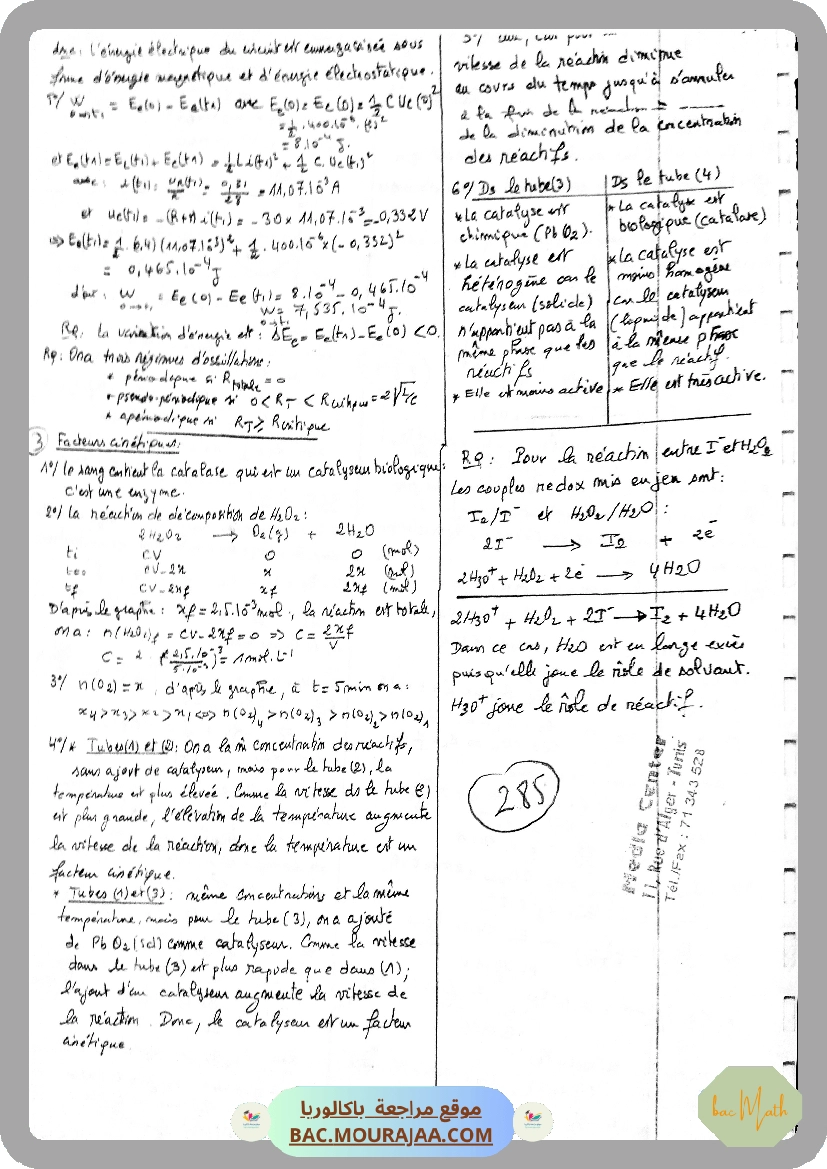 donc : l'énergie électrique du circuit est emmagasinée sous
forme d'énergie magnétique et d'énergie électrostatique.
W = Ee(0) - Ee(t1) avec Ee(0) = Ec(0) = 1/2 C Uc(0)²
= 1/2 . 400.10⁻⁶ . (2)²
= 8.10⁻⁴ J.
et Ee(t1) = EL(t1) + Ec(t1) = 1/2 L i(t1)² + 1/2 C. Uc(t1)²
avec : i(t1) = uR(t1)/R = 0,31/28 = 11,07.10⁻³ A
et uc(t1) = -(R+r) i(t1) = -30 x 11,07.10⁻³ = -0,332 V
=> Ee(t1) = 1/2 . 0,4) (11,07.10⁻³)² + 1/2 . 400.10⁻⁶ x (-0,332)²
= 0,465.10⁻⁴ J
d'où : W = Ee(0) - Ee(t1) = 8.10⁻⁴ - 0,465.10⁻⁴
W = 7,535.10⁻⁴ J.
0→t1
Rq : La variation d'énergie est : ΔEe = Ee(t1) - Ee(0) < 0.
Rq : On a trois régimes d'oscillations :
* périodique si Rtotale = 0
* pseudo-périodique si 0 < RT < Rcritique = 2√L/C
* apériodique si RT ≥ Rcritique
3 Facteurs cinétiques :
1°/ Le sang contient la catalase qui est un catalyseur biologique :
c'est une enzyme.
2°/ La réaction de décomposition de H2O2 :
2H2O2 → O2(g) + 2H2O
ti CV 0 0 (mol)
t>0 CV-2x x 2x (mol)
tf CV-2xf xf 2xf (mol)
D'après le graphe : xf = 2,5.10⁻³ mol, la réaction est totale,
on a : n(H2O2)f = CV-2xf = 0 => C = 2xf/V
C = 2 (2,5.10⁻³/5.10⁻³) = 1 mol.L⁻¹
3°/ n(O2) = x, d'après le graphe, à t = 5 min on a :
x4 > x3 > x2 > x1 <=> n(O2)4 > n(O2)3 > n(O2)2 > n(O2)1
4°/ * Tubes (1) et (2) : On a la m̂ concentration des réactifs,
sans ajout de catalyseur, mais pour le tube (2), la
température est plus élevée. Comme la vitesse ds le tube (2)
est plus grande, l'élévation de la température augmente
la vitesse de la réaction, donc la température est un
facteur cinétique.
* Tubes (1) et (3) : même concentrations et la même
température, mais pour le tube (3), on a ajouté
de PbO2 (sd) comme catalyseur. Comme la vitesse
dans le tube (3) est plus rapide que dans (1) ;
l'ajout d'un catalyseur augmente la vitesse de
la réaction. Donc, le catalyseur est un facteur
cinétique.
vitesse de la réaction diminue
au cours du temps jusqu'à s'annuler
à la fin de la réaction
de la diminution de la concentration
des réactifs.
6°/ Ds le tube (3)
* La catalyse est
chimique (PbO2).
* La catalyse est
hétérogène car le
catalyseur (solide)
n'appartient pas à la
même phase que les
réactifs
* Elle est moins active
Ds le tube (4)
* La catalyse est
biologique (catalase)
* La catalyse est
moins homogène
car le catalyseur
(liquide) appartient
à la même phase
que le réactif.
* Elle est très active.
RQ : Pour la réaction entre I⁻ et H2O2
Les couples redox mis en jeu sont :
I2/I⁻ et H2O2/H2O :
2I⁻ → I2 + 2e⁻
2H3O⁺ + H2O2 + 2e⁻ → 4H2O
2H3O⁺ + H2O2 + 2I⁻ → I2 + 4H2O
Dans ce cas, H2O est en large excès
puisqu'elle joue le rôle de solvant.
H3O⁺ joue le rôle de réactif.
285
Media Center
11, Rue d'Alger - Tunis
Tél./Fax : 71 343 528
موقع مراجعة باكالوريا
BAC.MOURAJAA.COM
bac Math